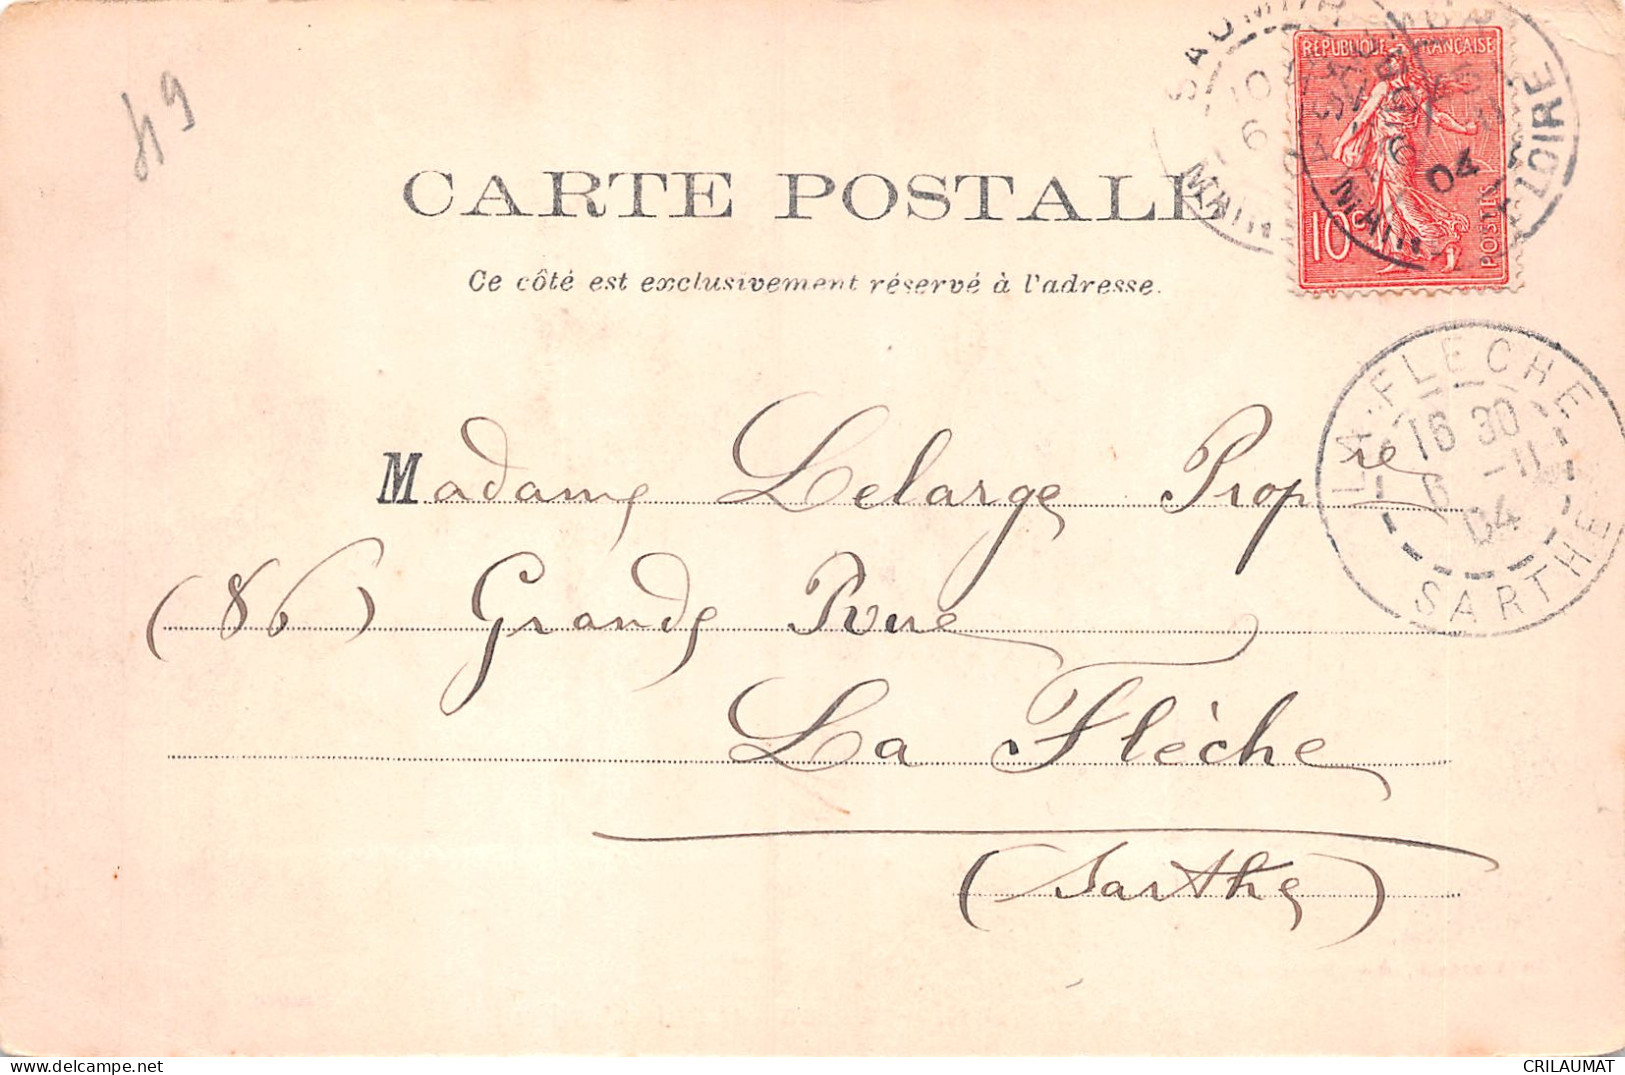 49
SAUMUR
RÉPUBLIQUE FRANÇAISE
10
6
04
LOIRE
10c
POSTES
CARTE POSTALE
Ce côté est exclusivement réservé à l'adresse.
LA FLECHE
16 30
6 -11
04
SARTHE
Madame Lelarge Propre
(86) Grande Rue
La Flèche
(Sarthe)
CRILAUMAT